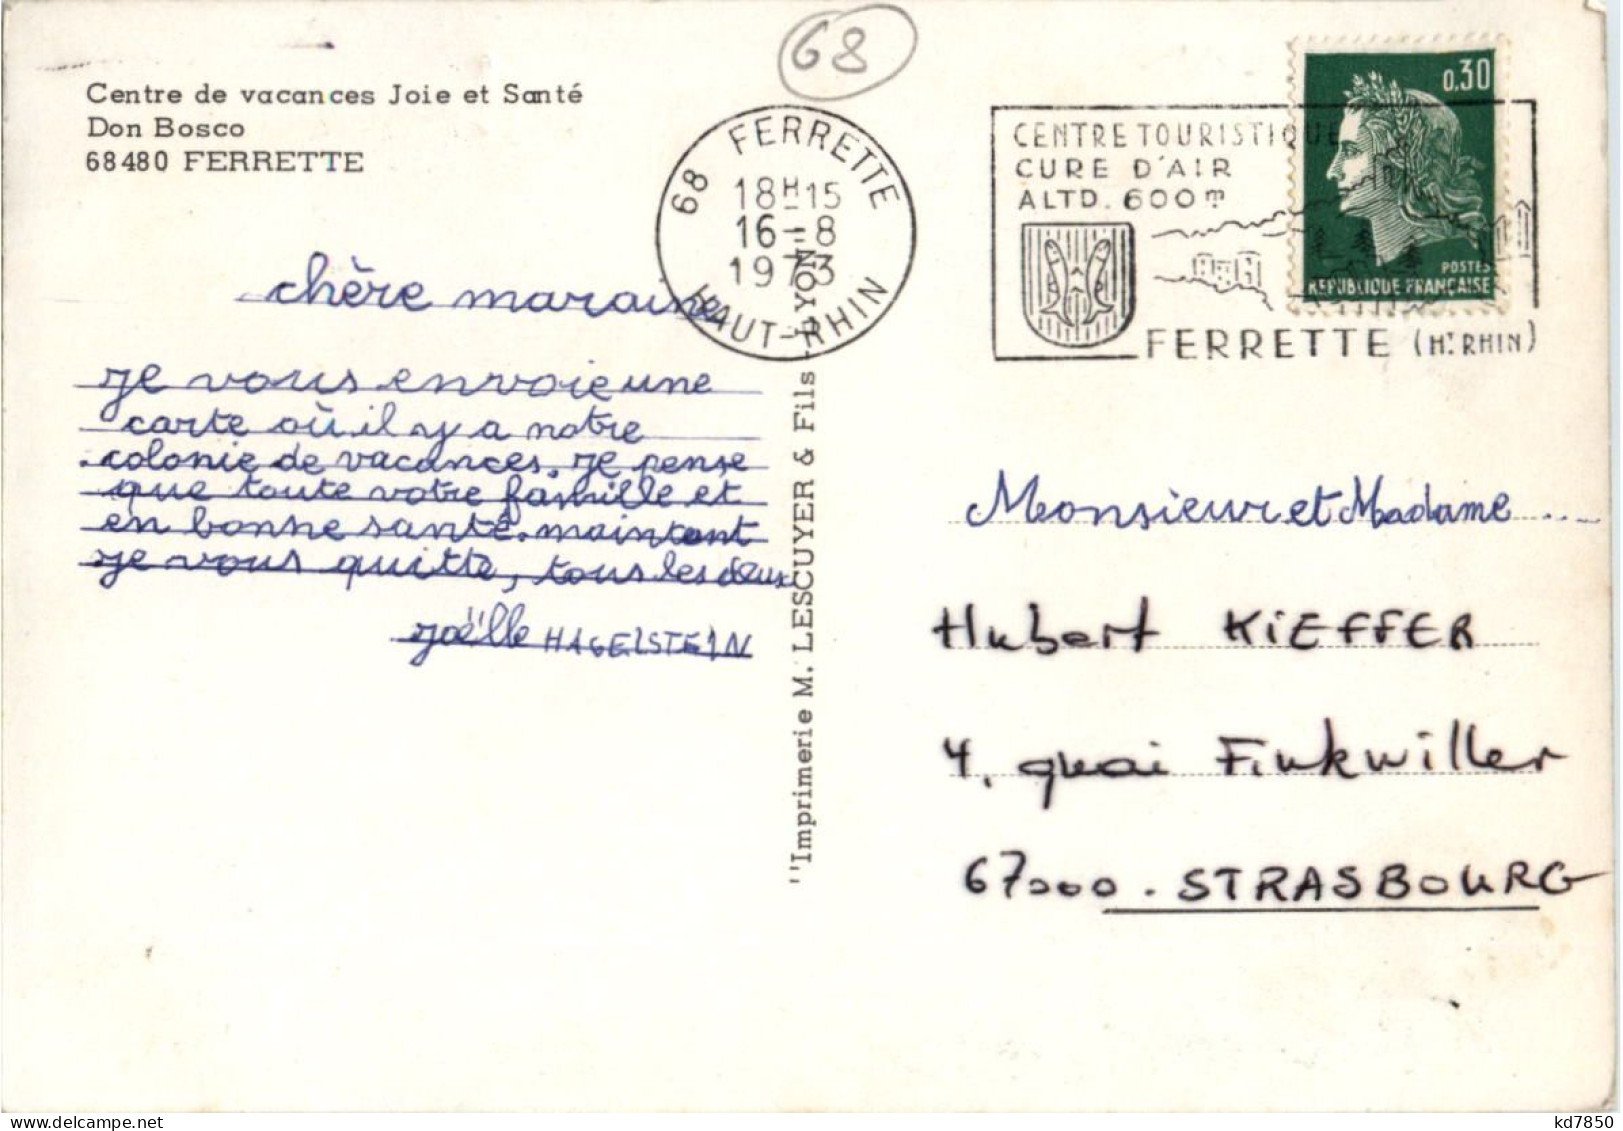 68
Centre de vacances Joie et Santé
Don Bosco
68480 FERRETTE
68 FERRETTE
18H15
16-8
1973
HAUT-RHIN
CENTRE TOURISTIQUE
CURE D'AIR
ALTD. 600m
FERRETTE (HT RHIN)
0,30
POSTES
REPUBLIQUE FRANÇAISE
chère maraine
je vous envoie une
carte où il y a notre
colonie de vacances. je pense
que toute votre famille et
en bonne santé. maintant
je vous quitte, tous les deux
joëlle HAGELSTEIN
"Imprimerie M. LESCUYER & Fils - LYON
Monsieur et Madame
Hubert KIEFFER
4. quai Finkwiller
67000 . STRASBOURG
kd7850